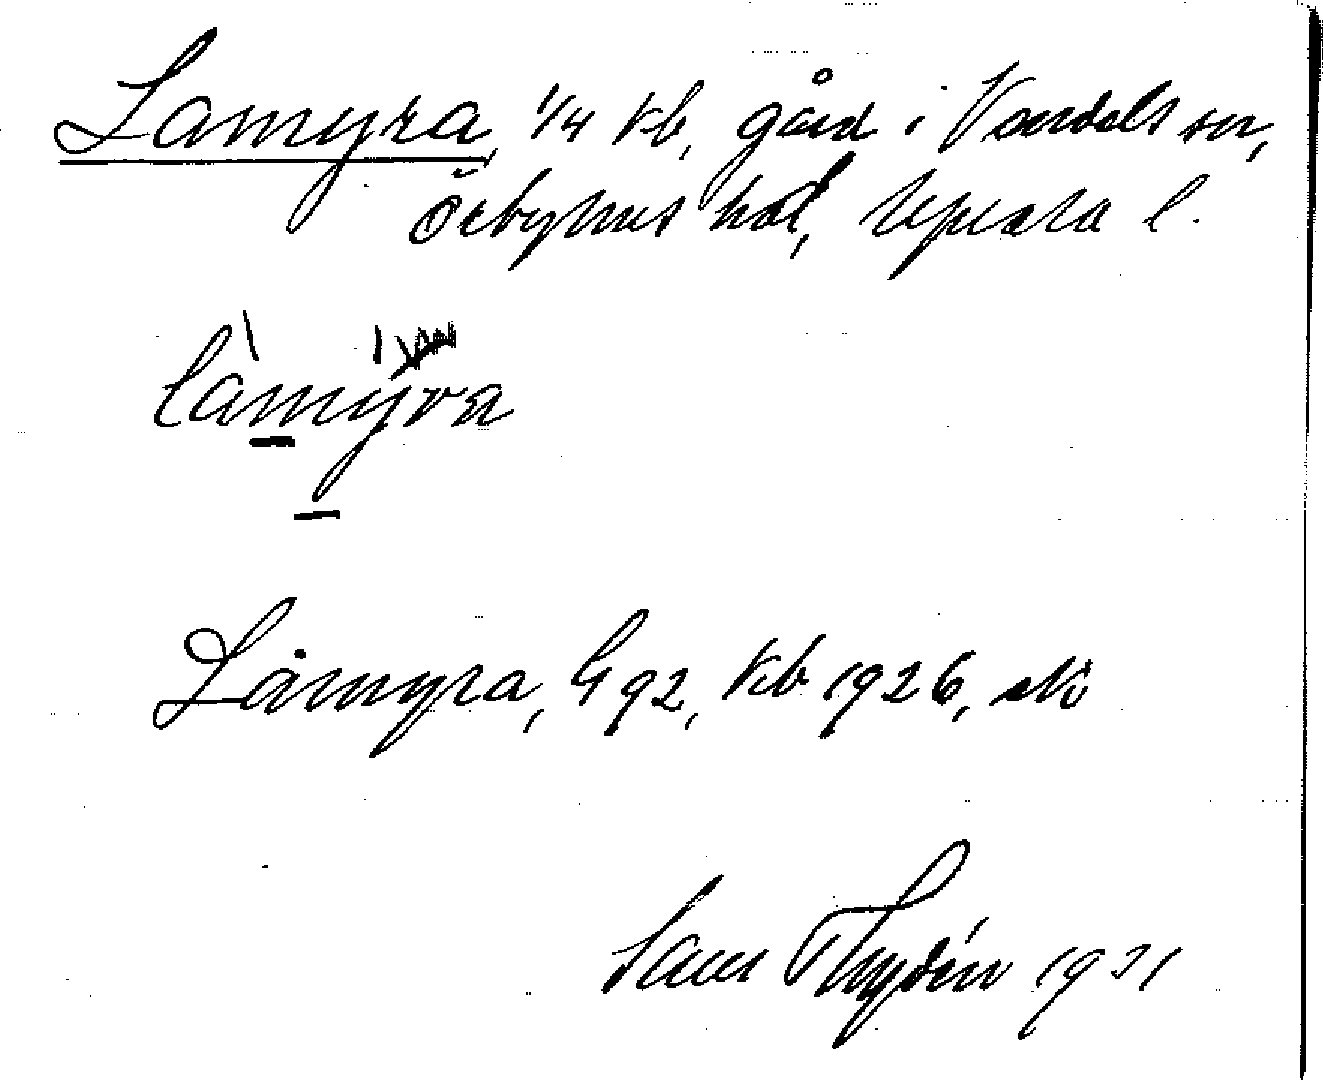 Lamyra, 1/4 kb, gård i Vendels sn,
Örbyhus hd, Upsala l.
làmýra
Låmyra, G 92, kb 1926,
Thydén 1931